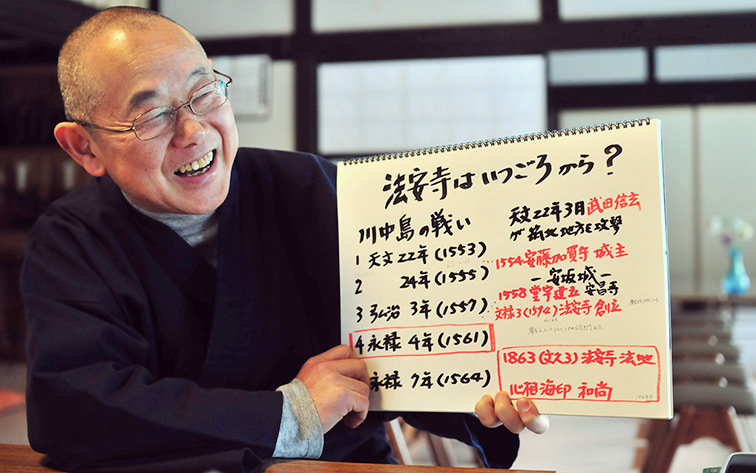 法安寺はいつごろから?
川中島の戦い
1 天文22年(1553)
2 24年(1555)
3 弘治 3年(1557)
4 永禄 4年(1561)
永禄 7年(1564)
天文22年3月武田信玄
が筑北地方を攻撃
1554安藤加賀守 城主
安坂城
1558堂宇建立 安昌寺
文禄3(1594)法安寺 創立
1863(文久3)法安寺 法地
心相海印 和尚